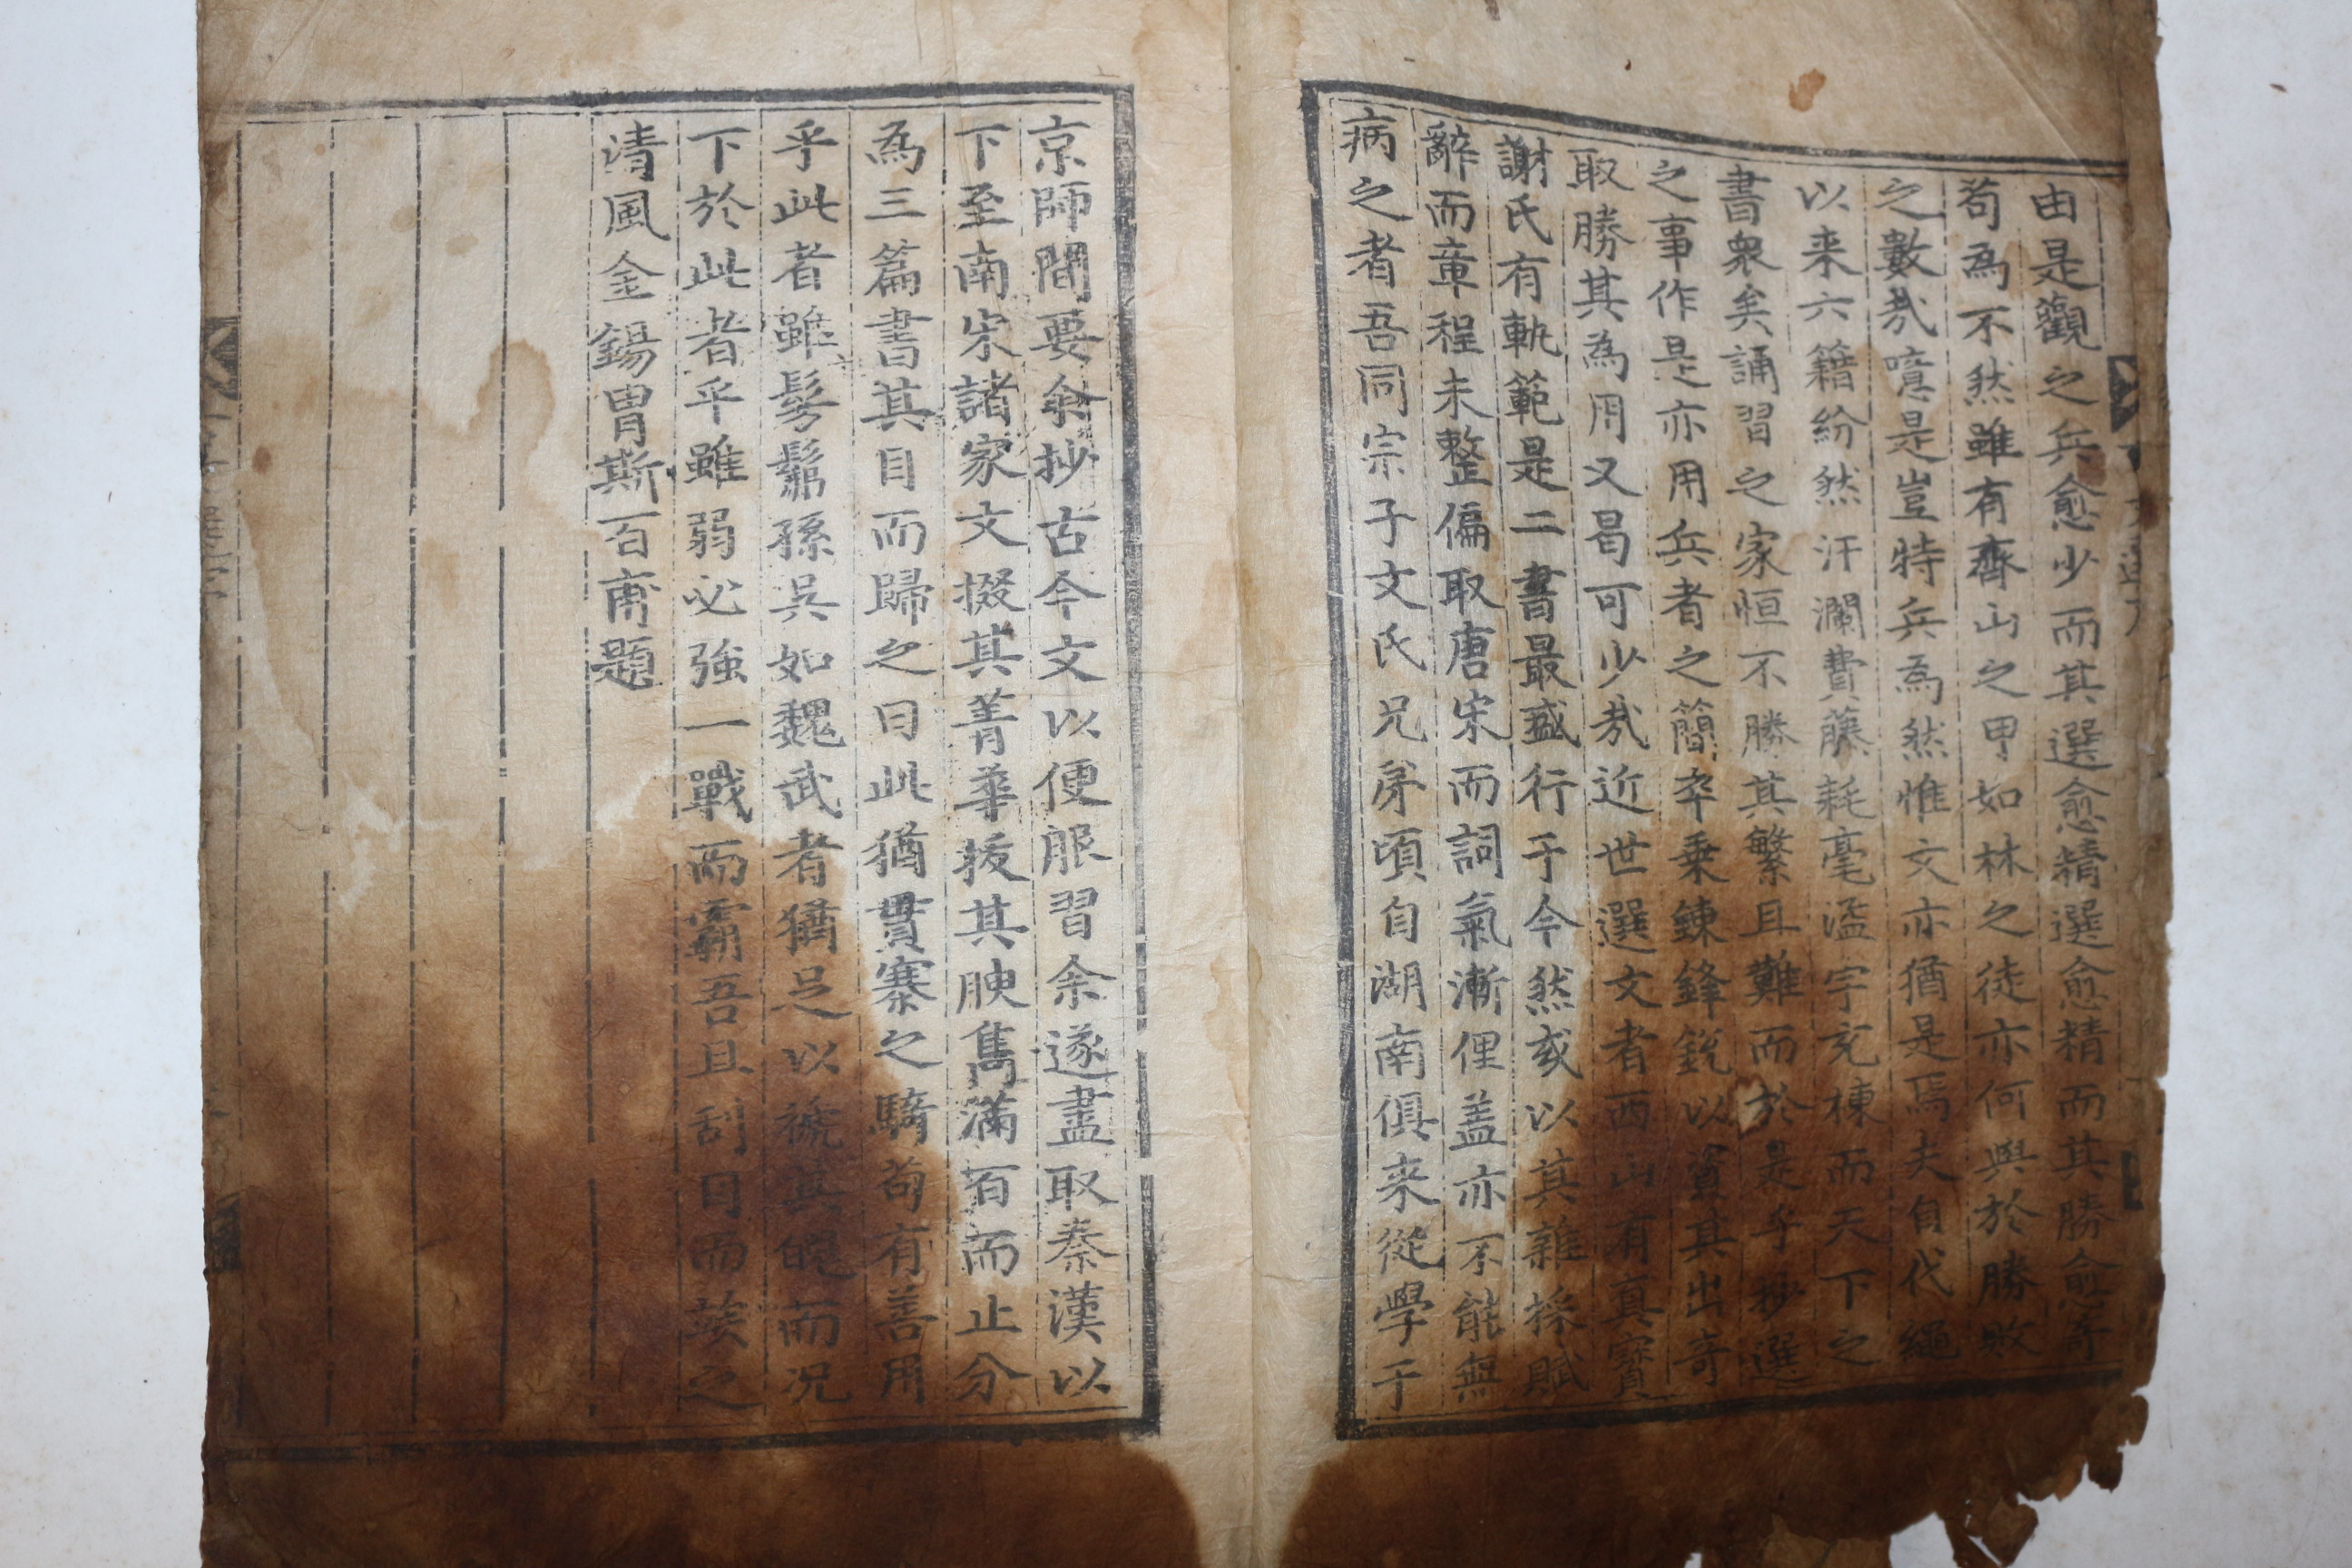 由是觀之兵愈少而其選愈精選愈精而其勝愈奇
苟為不然雖有齊山之甲如林之徒亦何與於勝敗
之數㢤噫是豈特兵為然惟文亦猶是焉夫自代繩
以来六籍紛然汗瀾費藤耗毫溢宇充棟而天下之
書衆矣誦習之家恒不勝其繁且難而於是乎抄選
之事作是亦用兵者之簡卒乗鍊鋒銳以資其出奇
取勝其為用又曷可少㢤近世選文者西山有真寳
謝氏有軌範是二書最盛行于今然或以其雜採賦
辭而章程未整偏取唐宋而詞氣漸俚盖亦不能無
病之者吾同宗子文氏兄弟頃自湖南俱来從學于
京師間要余抄古今文以便服習余遂盡取秦漢以
下至南宋諸家文掇其菁華抜其腴雋滿百而止分
為三篇書其目而歸之曰此猶貫寨之騎苟有善用
乎此者雖髣髴孫吳如魏武者猶足以褫其魄而况
下於此者乎雖弱必強一戰而霸吾且刮目而竢之
清風金錫胄斯百甫題